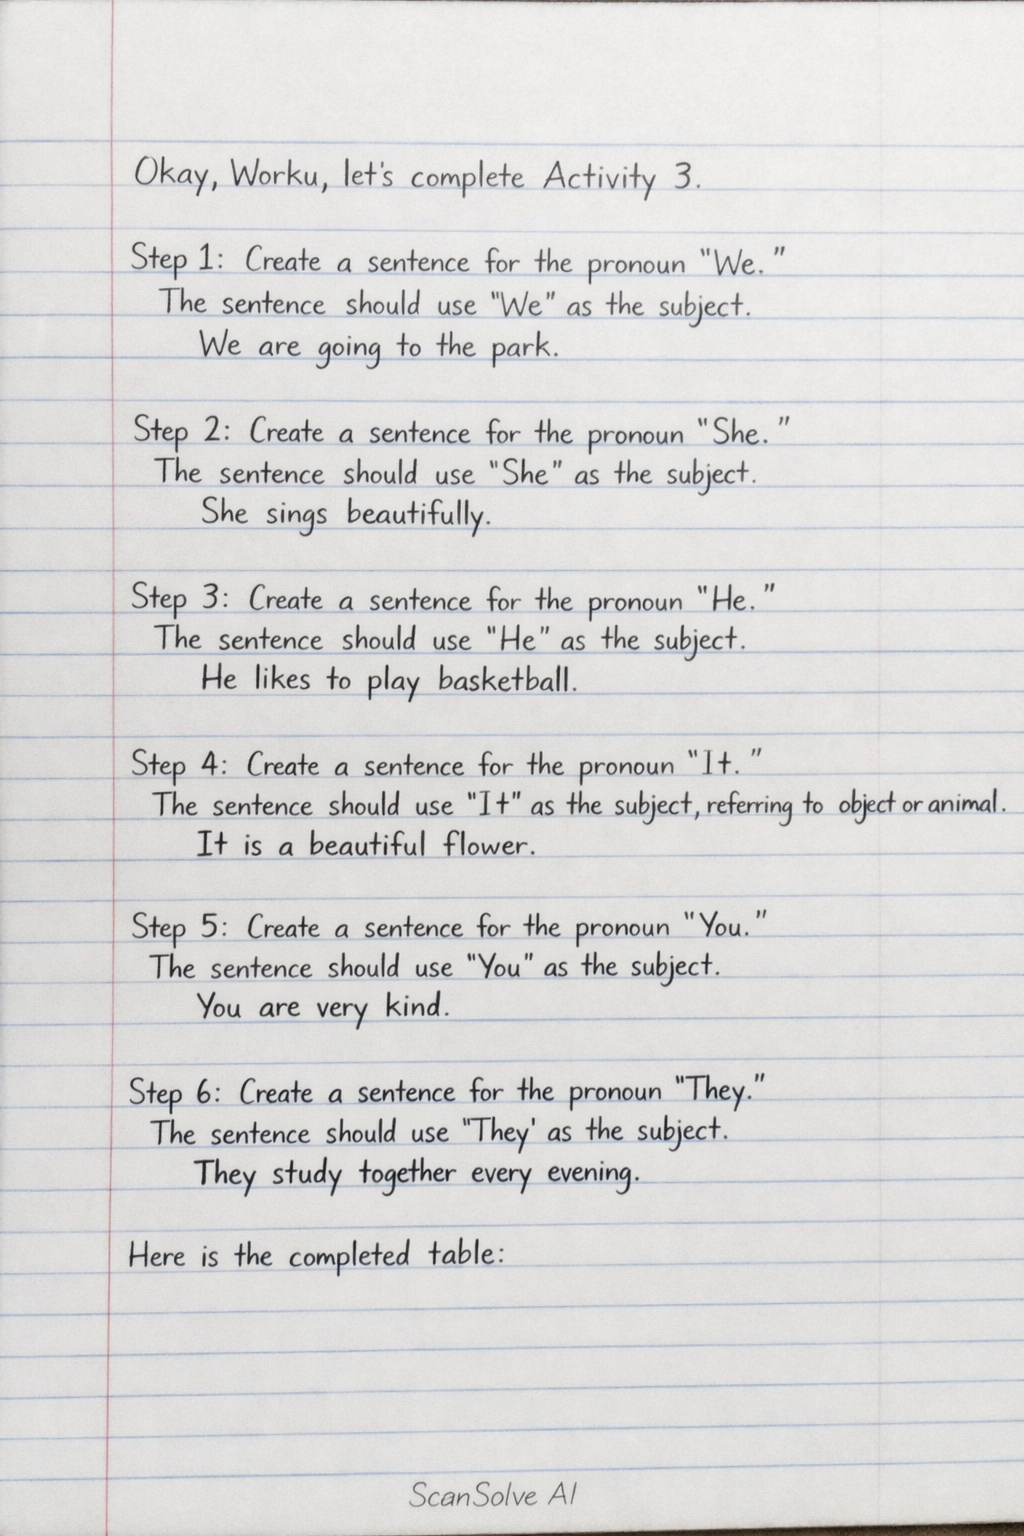 Okay, Worku, let's complete Activity 3.
Step 1: Create a sentence for the pronoun "We."
The sentence should use "We" as the subject.
We are going to the park.
Step 2: Create a sentence for the pronoun "She."
The sentence should use "She" as the subject.
She sings beautifully.
Step 3: Create a sentence for the pronoun "He."
The sentence should use "He" as the subject.
He likes to play basketball.
Step 4: Create a sentence for the pronoun "It."
The sentence should use "It" as the subject, referring to object or animal.
It is a beautiful flower.
Step 5: Create a sentence for the pronoun "You."
The sentence should use "You" as the subject.
You are very kind.
Step 6: Create a sentence for the pronoun "They."
The sentence should use "They' as the subject.
They study together every evening.
Here is the completed table:
ScanSolve AI